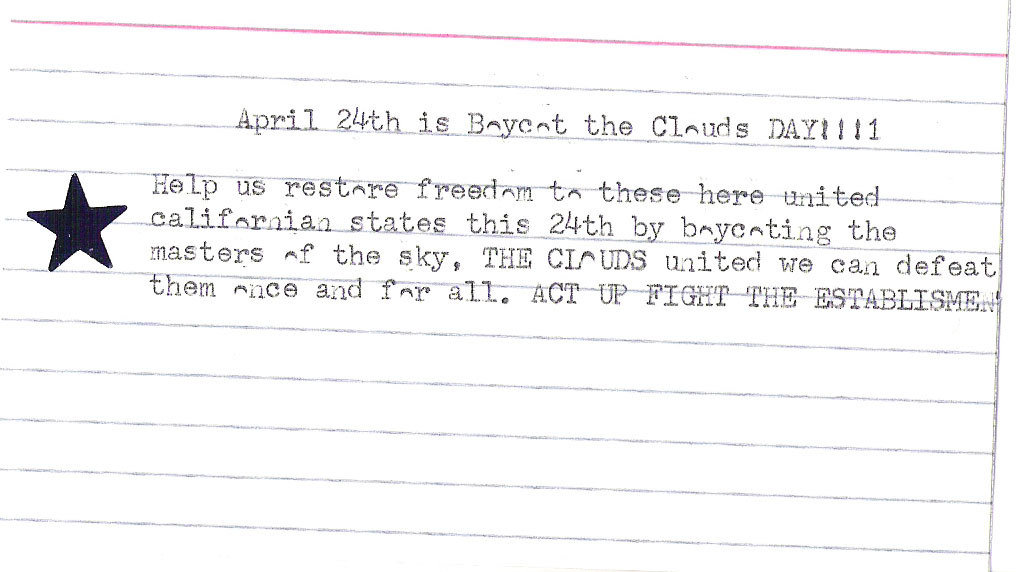 April 24th is Boycot the Clouds DAY!!!!1
Help us restore freedom to these here united
californian states this 24th by boycoting the
masters of the sky, THE CLOUDS united we can defeat
them once and for all. ACT UP FIGHT THE ESTABLISMEN